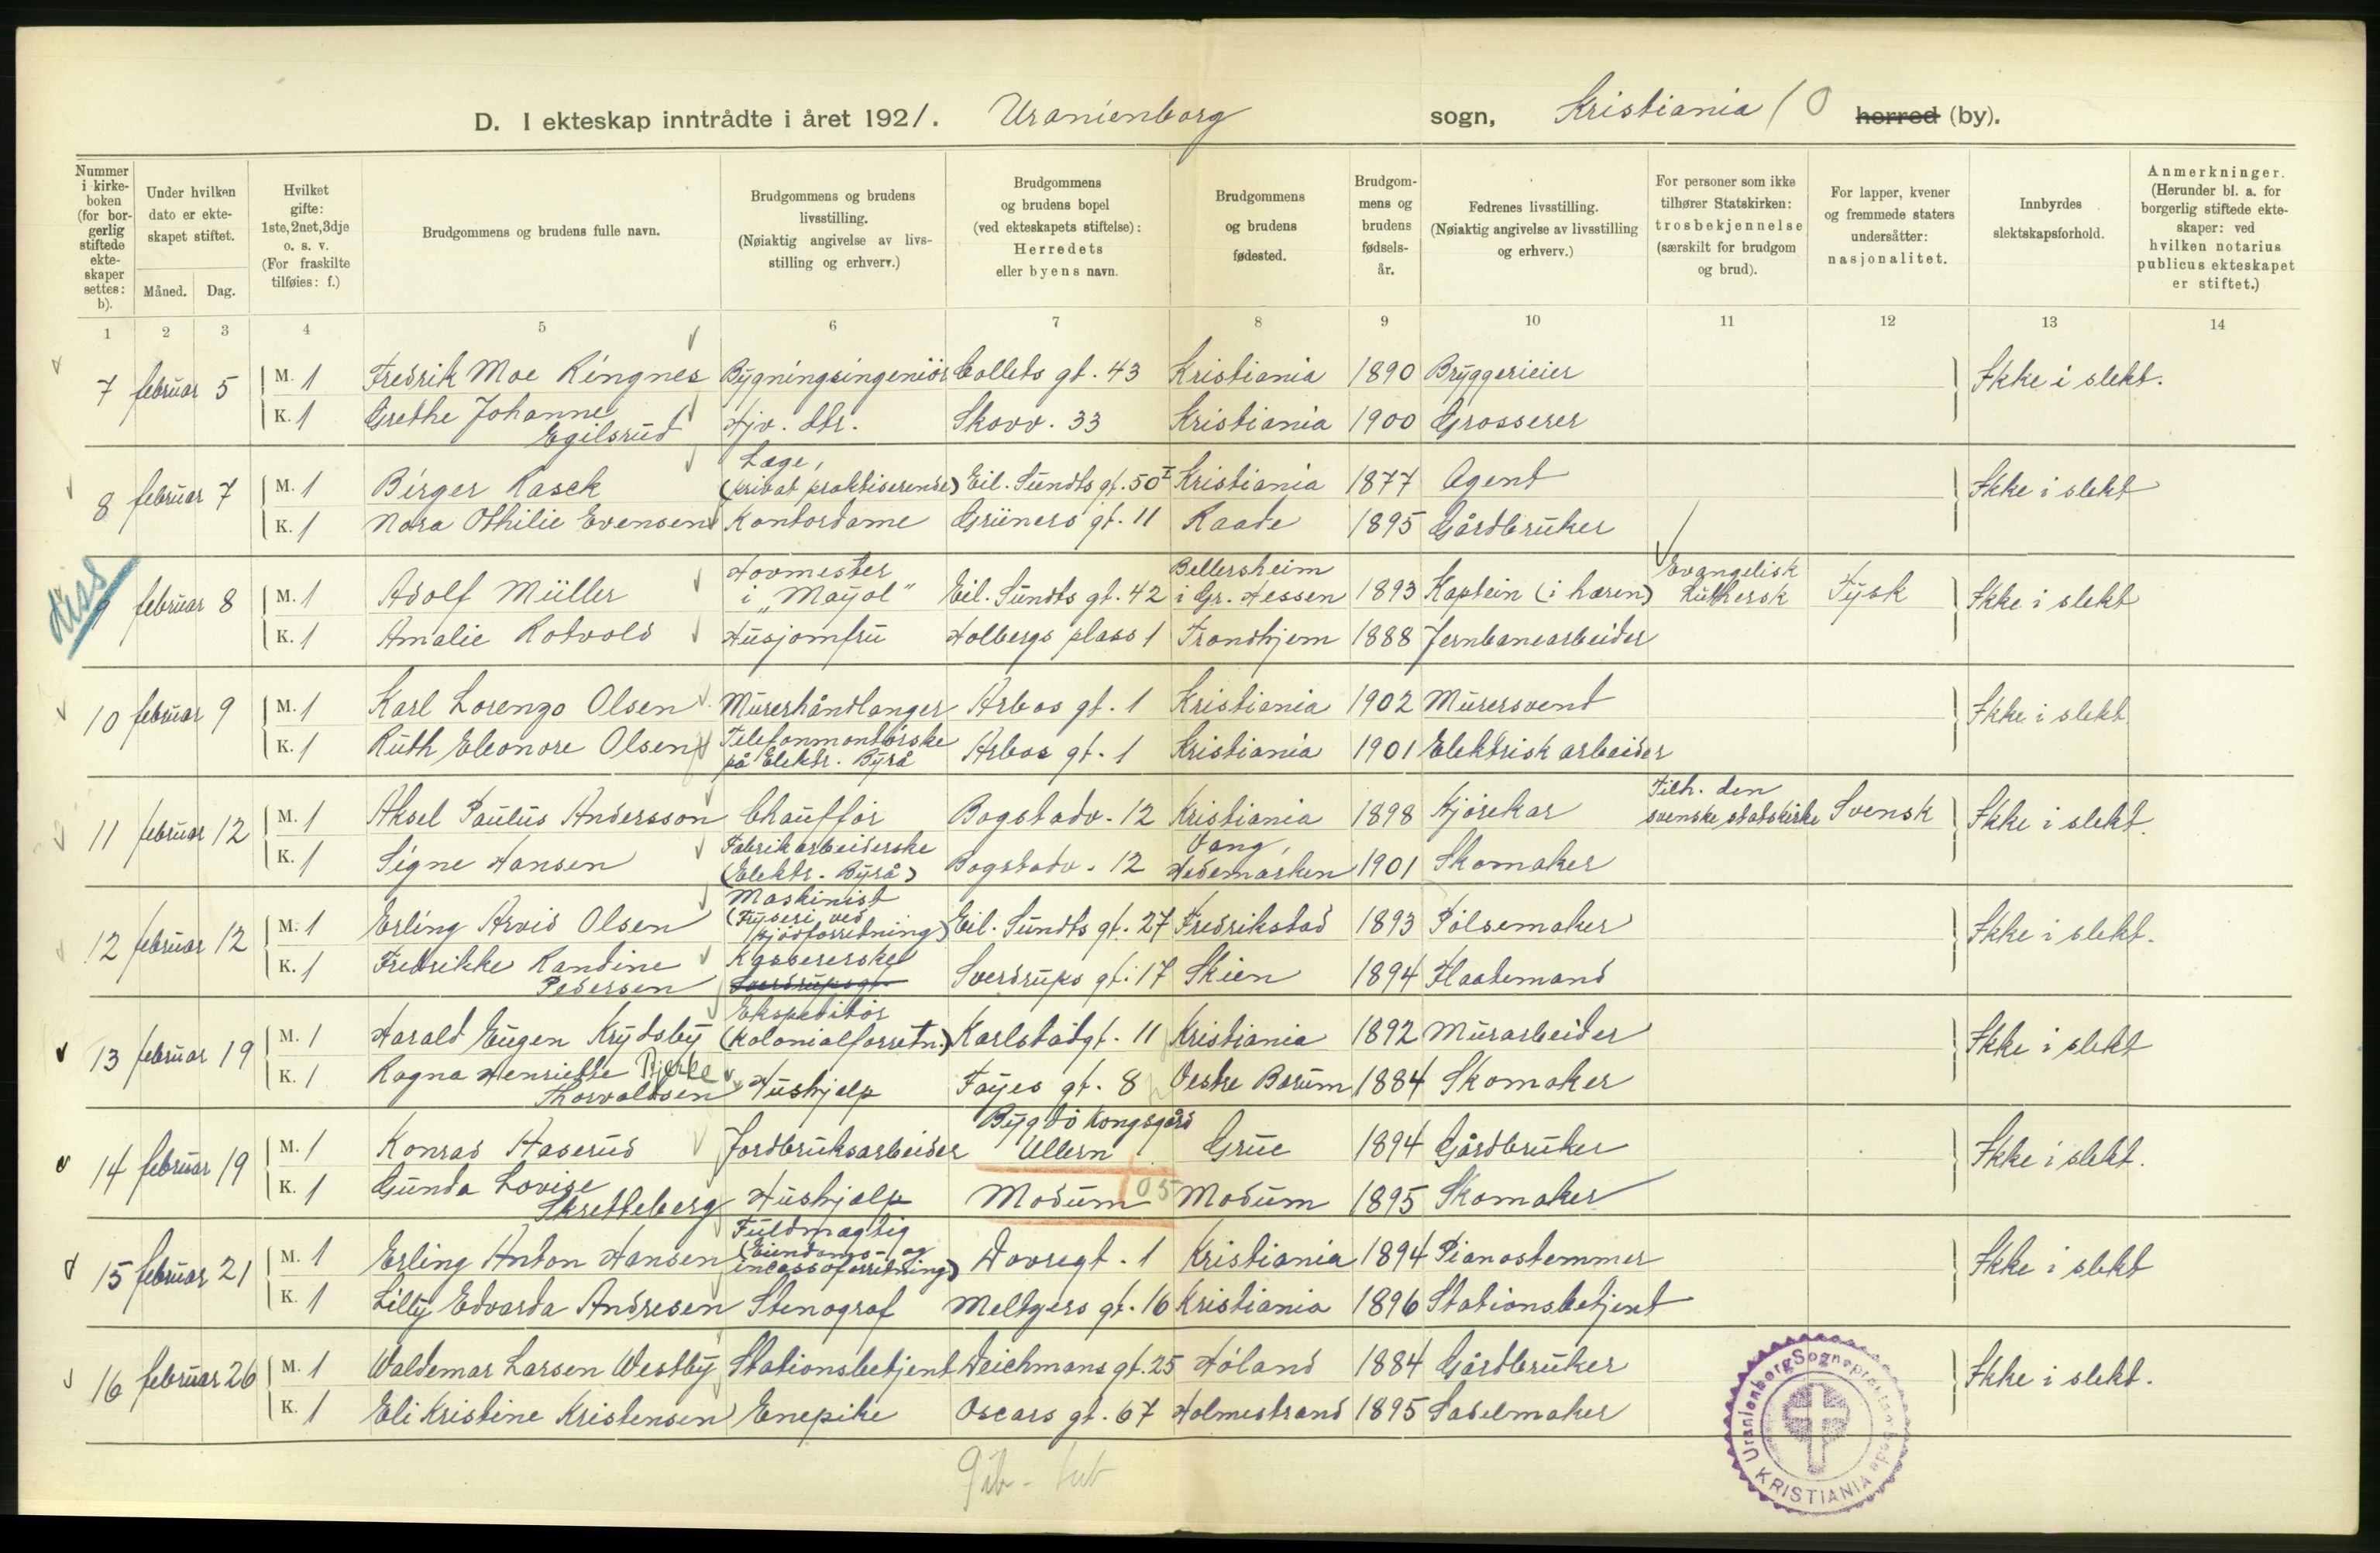 D. I ekteskap inntrådte i året 1921. Uranienborg sogn, Kristiania / 0 herred (by).
Nummer i kirke- boken (for bor- gerlig stiftede ekte- skaper settes: b).
Under hvilken dato er ekte- skapet stiftet.
Måned. Dag.
Hvilket gifte: 1ste, 2net, 3dje o. s. v. (For fraskilte tilføies: f.)
Brudgommens og brudens fulle navn.
Brudgommens og brudens livsstilling. (Nøiaktig angivelse av livs- stilling og erhverv.)
Brudgommens og brudens bopel (ved ekteskapets stiftelse): Herredets eller byens navn.
Brudgommens og brudens fødested.
Brudgom- mens og brudens fødsels- år.
Fedrenes livsstilling. (Nøiaktig angivelse av livsstilling og erhverv.)
For personer som ikke tilhører Statskirken: trosbekjennelse (særskilt for brudgom og brud).
For lapper, kvener og fremmede staters undersåtter: nasjonalitet.
Innbyrdes slektskapsforhold.
Anmerkninger. (Herunder bl. a. for borgerlig stiftede ekte- skaper: ved hvilken notarius publicus ekteskapet er stiftet.)
1 2 3 4 5 6 7 8 9 10 11 12 13 14
7 februar 5 M. 1 Fredrik Moe Ringnes Bygningsingeniör Collets gt. 43 Kristiania 1890 Bryggerieier Ikke i slekt.
K. 1 Grethe Johanne Egilsrud Hjv. dtr. Skovv. 33 Kristiania 1900 Grosserer
8 februar 7 M. 1 Birger Rasck Læge, (privat praktiserende) Eil. Sundts gt. 50 I Kristiania 1877 Agent Ikke i slekt
K. 1 Nora Othilie Evensen Kontordame Grüners gt. 11 Raade 1895 Gårdbruker
9 februar 8 M. 1 Adolf Müller Hovmester i "Mayol" Eil. Sundts gt. 42 Bellersheim i Gr. Hessen 1893 Kaptein (i hæren) Evangelisk Luthersk Tysk Ikke i slekt
K. 1 Amalie Rotvold Husjomfru Holbergs plass 1 Trondhjem 1888 Jernbanearbeider
10 februar 9 M. 1 Karl Lorenzo Olsen Murerhåndlanger Arbos gt. 1 Kristiania 1902 Murersvend Ikke i slekt
K. 1 Ruth Eleonore Olsen Telefonmontörske på Elektr. Byrå Arbos gt. 1 Kristiania 1901 Elektrisk arbeider
11 februar 12 M. 1 Aksel Paulus Andersson Chaufför Bogstadv. 12 Kristiania 1898 Kjörekar Tilh. den svenske statskirke Svensk Ikke i slekt.
K. 1 Signe Hansen Fabrikarbeiderske (Elektr. Byrå) Bogstadv. 12 Vang, Hedemarken 1901 Skomaker
12 februar 12 M. 1 Erling Arvid Olsen Maskinist (Fryseri ved kjödforretning) Eil. Sundts gt. 27 Fredrikstad 1893 Pölsemaker Ikke i slekt.
K. 1 Fredrikke Randine Pedersen Kassererske Sverdrupsgt. Sverdrups gt. 17 Skien 1894 Flaatemand
13 februar 19 M. 1 Harald Eugen Krydsby Ekspeditör (Kolonialforretn.) Karlstadgt. 11 Kristiania 1892 Murarbeider Ikke i slekt
K. 1 Ragna Henriette Bjerke Thorvaldsen Hushjelp Fayes gt. 8 Vestre Bærum 1884 Skomaker
14 februar 19 M. 1 Konrad Haserud Jordbruksarbeider Bygdö Kongsgård Ullern Grue 1894 Gårdbruker Ikke i slekt.
K. 1 Gunda Lovise Skretteberg Hushjelp Modum 05 Modum 1895 Skomaker
15 februar 21 M. 1 Erling Anton Hansen Fuldmægtig (Eiendoms- og incassoforretning) Dovregt. 1 Kristiania 1894 Pianostemmer Ikke i slekt
K. 1 Lilly Edvarda Andresen Stenograf Meltzers gt. 16 Kristiania 1896 Stationsbetjent
16 februar 26 M. 1 Waldemar Larsen Westby Stationsbetjent Deichmans gt. 25 Höland 1884 Gårdbruker Ikke i slekt.
K. 1 Eli Kristine Kristensen Enepike Oscars gt. 67 Holmestrand 1895 Sadelmaker
Uranienborg Sogneprestembede KRISTIANIA